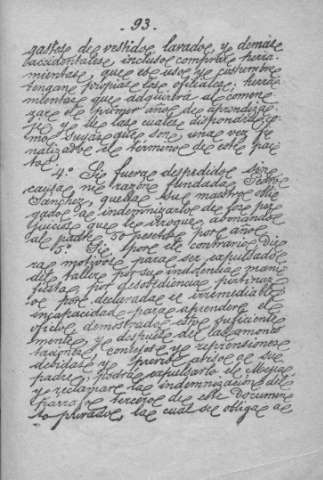 - 93. -
gastos de vestido lavado y demás
accidentales incluso comprar herra-
mientas, que es uso y costumbre
tengan propias los oficiales; herra-
mientas que adquirirá al comen-
zar el primer año de aprendiza-
je y de las cuales dispondrá co-
mo suyas que son, una vez fi-
nalizado el término de este pac-
to.
4.º Si fuera despedido sin
causa ni razón fundada
Sánchez, queda su maestro obli-
gado a indemnizarlo de los per-
juicios que le irrogue, abonando
al padre 50 pesetas por año.
5.º Si por el contrario die-
ra motivos para ser expulsado
del taller por su indolencia mani-
fiesta, por desobediencia
o por declarada e irremediable
incapacidad para aprender el
oficio, demostrado esto suficiente-
mente y después de las amones-
taciones, consejos y reprensiones
debidas y previo aviso a su
padre, podrá expulsarlo el
y reclamar la indemnización del
párrafo tercero de este documen-
to privado, la cual se obliga a